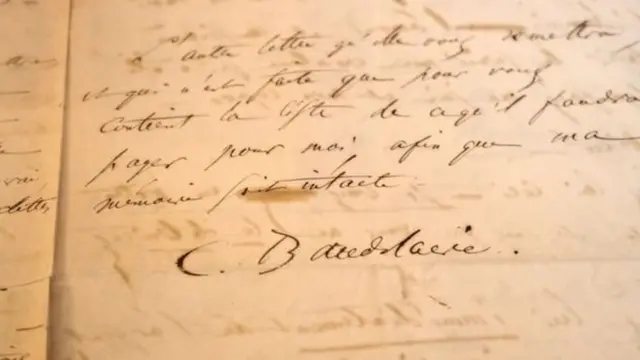 L'autre lettre qu'elle vous remettra
et qui n'est faite que pour vous
contient la liste de ce qu'il faudra
payer pour moi afin que ma
mémoire soit intacte
C. Baudelaire.